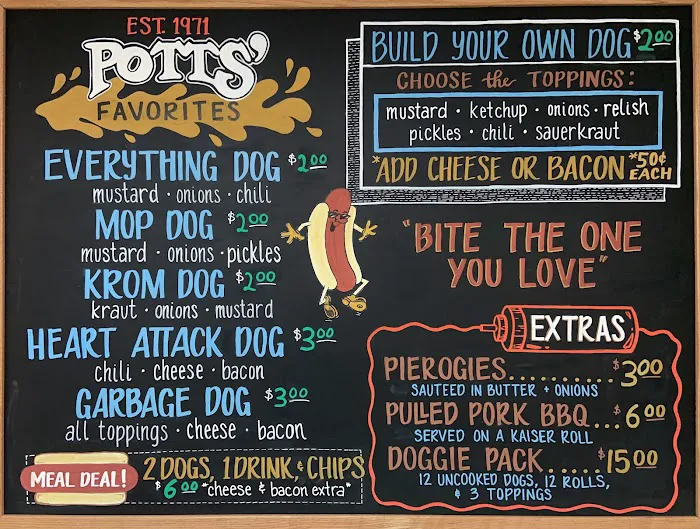 EST. 1971
POTTS'
FAVORITES
EVERYTHING DOG $2.00
mustard · onions · chili
MOP DOG $2.00
mustard · onions · pickles
KROM DOG $2.00
kraut · onions · mustard
HEART ATTACK DOG $3.00
chili · cheese · bacon
GARBAGE DOG $3.00
all toppings · cheese · bacon
MEAL DEAL! 2 DOGS, 1 DRINK, & CHIPS
$6.00 *cheese & bacon extra*
BUILD YOUR OWN DOG $2.00
CHOOSE the TOPPINGS:
mustard · ketchup · onions · relish
pickles · chili · sauerkraut
*ADD CHEESE OR BACON *50¢ EACH
"BITE THE ONE
YOU LOVE"
EXTRAS
PIEROGIES.......... $3.00
SAUTEED IN BUTTER + ONIONS
PULLED PORK BBQ... $6.00
SERVED ON A KAISER ROLL
DOGGIE PACK..... $15.00
12 UNCOOKED DOGS, 12 ROLLS,
& 3 TOPPINGS